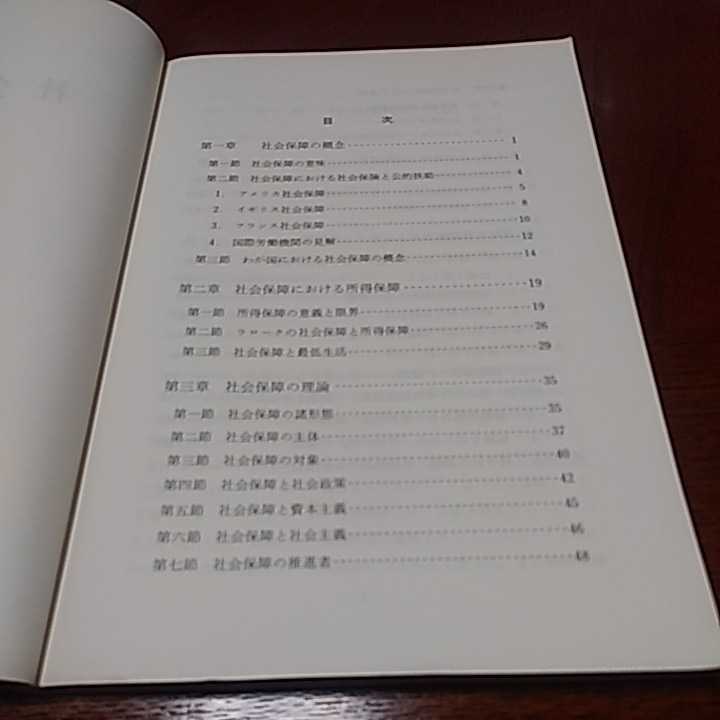 目 次
第一章 社会保障の概念……………………1
第一節 社会保障の意味……………………1
第二節 社会保障における社会保険と公的扶助……………………4
1. アメリス社会保障……………………5
2. イギリス社会保障……………………8
3. フランス社会保障……………………10
4. 国際労働機関の見解……………………12
第三節 わが国における社会保障の概念……………………14
第二章 社会保障における所得保障……………………19
第一節 所得保障の意義と限界……………………19
第二節 ラロークの社会保障と所得保障……………………26
第三節 社会保障と最低生活……………………29
第三章 社会保障の理論……………………35
第一節 社会保障の諸形態……………………35
第二節 社会保障の主体……………………37
第三節 社会保障の対象……………………40
第四節 社会保障と社会政策……………………42
第五節 社会保障と資本主義……………………45
第六節 社会保障と社会主義……………………46
第七節 社会保障の推進者……………………48